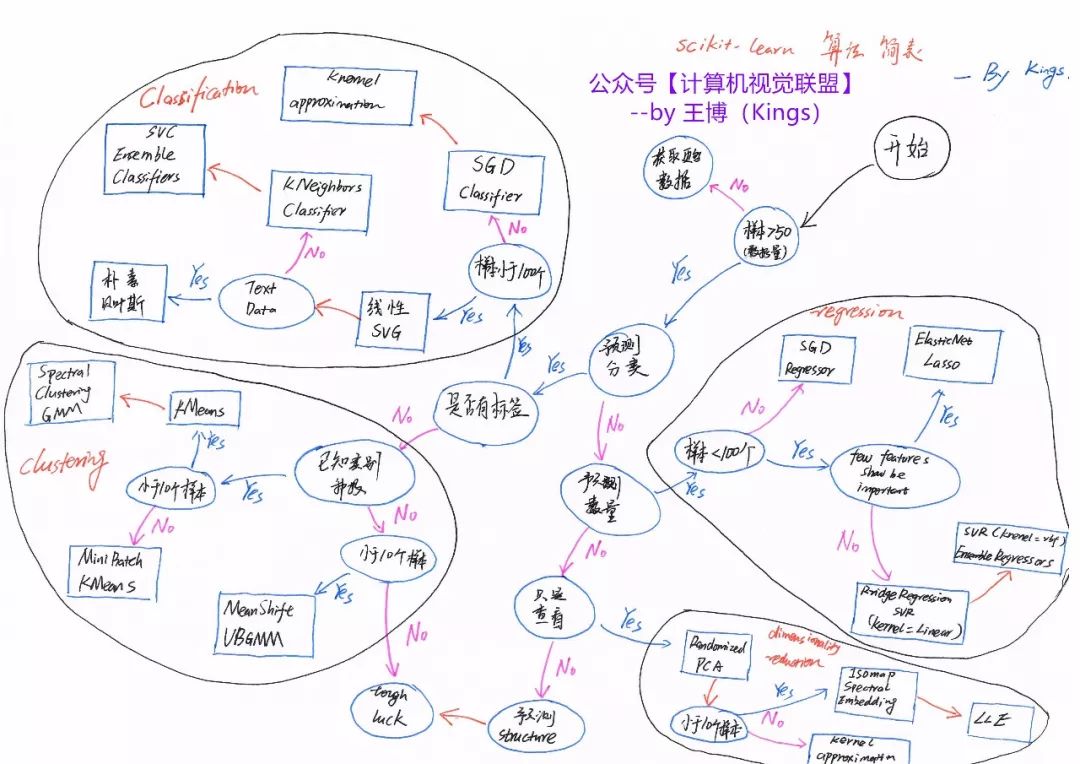 scikit-learn 算法 简表
公众号【计算机视觉联盟】
--by 王博（Kings）
- By Kings.
开始
样本>50
(数据量)
No
数据
Yes
预测
分类
Yes
No
是否有标签
Yes
No
Classification
Knernel
approximation
SVC
Ensemble
Classifiers
KNeighbors
Classifier
SGD
Classifier
No
No
样本小于100个
Yes
线性
SVG
Text
Data
Yes
朴素
贝叶斯
clustering
Spectral
Clustering
GMM
KMeans
Yes
小于10个样本
Yes
已知类别
种数
No
No
MiniBatch
KMeans
小于10个样本
Yes
MeanShift
VBGMM
No
tough
luck
预测
structure
No
只是
查看
No
预测
数量
Yes
Yes
regression
SGD
Regressor
ElasticNet
Lasso
No
Yes
样本<100个
Yes
few features
shoud be
important
No
SVR (knenel=rbf)
Ensemble Regressors
RridgeRegression
SVR
(kernel=Linear)
dimensionality
reduction
Randomized
PCA
小于10个样本
Yes
No
Isomap
Spectral
Embedding
LLE
kernel
approximation